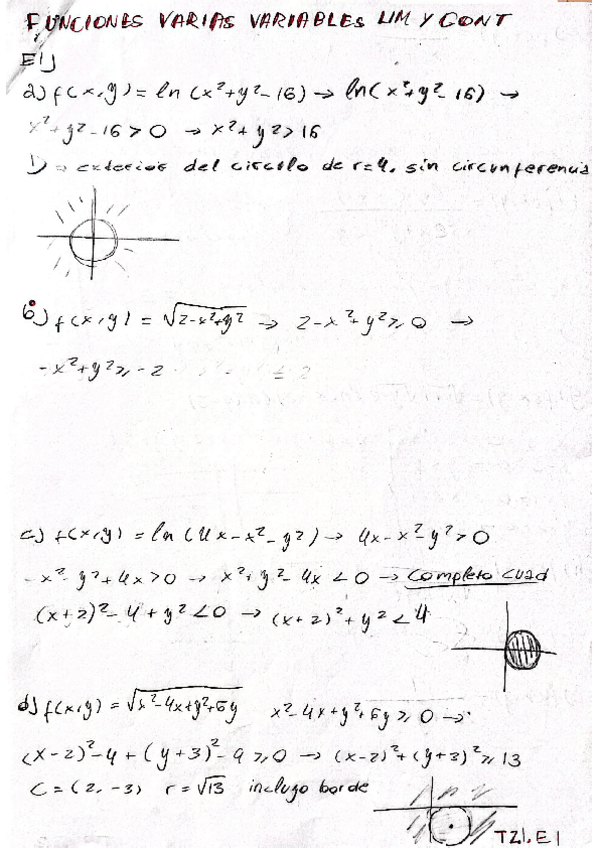 FUNCIONES VARIAS VARIABLES LIM Y CONT
E1)
a) f(x,y) = ln (x²+y²-16) → ln(x²+y²-16) →
x²+y²-16 > 0 → x²+y² > 16
D → exterior del circulo de r=4, sin circunferencia
b) f(x,y) = √(2-x²+y²) → 2-x²+y² ≥ 0 →
-x²+y² ≥ -2
c) f(x,y) = ln (4x-x²-y²) → 4x-x²-y² > 0
-x²-y²+4x > 0 → x²+y²-4x < 0 → completo cuad
(x+2)²-4+y² < 0 → (x+2)²+y² < 4
d) f(x,y) = √(x²-4x+y²+6y) x²-4x+y²+6y ≥ 0 →
(x-2)²-4+(y+3)²-9 ≥ 0 → (x-2)²+(y+3)² ≥ 13
C = (2, -3) r = √13 incluyo borde
TZ1.E1